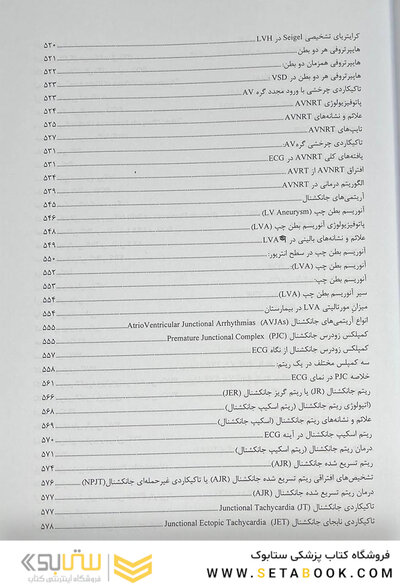 کرایتریای تشخیصی Seigel در LVH ۵۲۰
هایپرتروفی هر دو بطن ۵۲۱
هایپرتروفی همزمان دو بطن: ۵۲۲
هایپرتروفی هر دو بطن در VSD ۵۲۳
تاکیکاردی چرخشی با ورود مجدد گره AV ۵۲۳
پاتوفیزیولوژی AVNRT ۵۲۴
علائم و نشانه‌های AVNRT ۵۲۵
تایپ‌های AVNRT ۵۲۷
تاکیکاردی چرخشی گره AV: ۵۳۱
یافته‌های کلی AVNRT در ECG ۵۳۱
افتراق AVNRT از AVRT ۵۳۴
الگوریتم درمانی در AVNRT ۵۳۹
آریتمی‌های جانکشنال ۵۴۵
آنوریسم بطن چپ (LV Aneurysm) ۵۴۶
پاتوفیزیولوژی آنوریسم بطن چپ (LVA) ۵۴۸
علائم و نشانه‌های بالینی در LVA ۵۴۹
آنوریسم بطن چپ در سطح انتریور: ۵۵۰
آنوریسم بطن چپ (LVA): ۵۵۲
آنوریسم بطن چپ: ۵۵۳
سیر آنوریسم بطن چپ (LVA) ۵۵۴
میزان مورتالیتی LVA در بیمارستان ۵۵۴
انواع آریتمی‌های جانکشنال AtrioVentricular Junctional Arrhythmias (AVJAs) ۵۵۵
کمپلکس زودرس جانکشنال Premature Junctional Complex (PJC) ۵۵۵
کمپلکس زودرس جانکشنال از نگاه ECG ۵۵۷
سه کمپلس مختلف در یک ریتم: ۵۵۸
خلاصه PJC در نمای ECG ۵۶۱
ریتم جانکشنال (JR) یا ریتم گریز جانکشنال (JER) ۵۶۶
اتیولوژی ریتم جانکشنال (ریتم اسکیپ جانکشنال) ۵۶۸
علائم و نشانه‌های ریتم جانکشنال (اسکیپ جانکشنال) ۵۶۹
ریتم اسکیپ جانکشنال در آینه ECG ۵۷۰
درمان ریتم جانکشنال (ریتم اسکیپ جانکشنال) ۵۷۱
ریتم تسریع شده جانکشنال (AJR) ۵۷۴
تشخیص‌های افتراقی ریتم تسریع شده جانکشنال (AJR) با تاکیکاردی غیرحمله‌ای جانکشنال (NPJT) ۵۷۶
درمان ریتم تسریع شده جانکشنال (AJR) ۵۷۷
تاکیکاردی جانکشنال Junctional Tachycardia (JT) ۵۷۷
تاکیکاردی نابجای جانکشنال Junctional Ectopic Tachycardia (JET) ۵۷۸
فروشگاه کتاب پزشکی ستابوک
WWW.SETABOOK.COM
ستابوک
فروشگاه اینترنتی کتاب